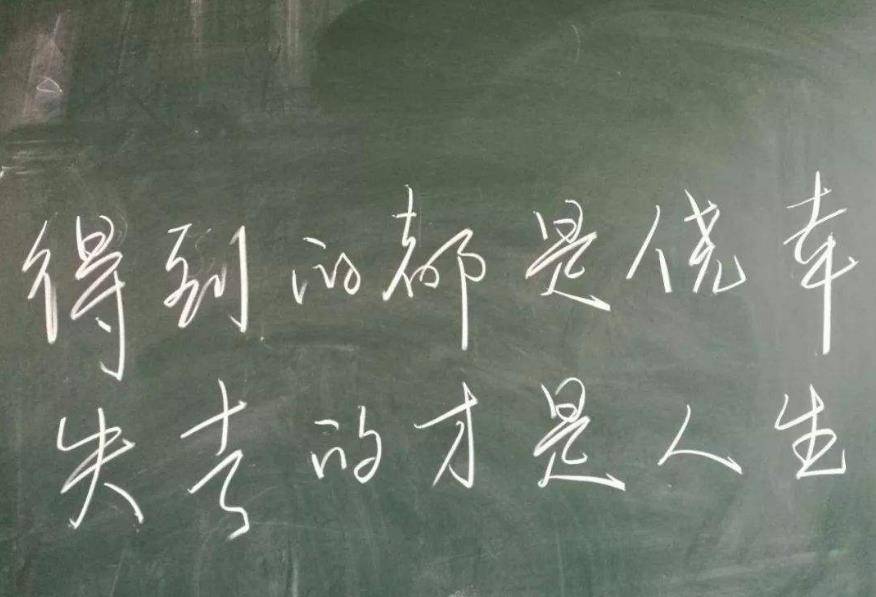 得到的都是侥幸
失去的才是人生